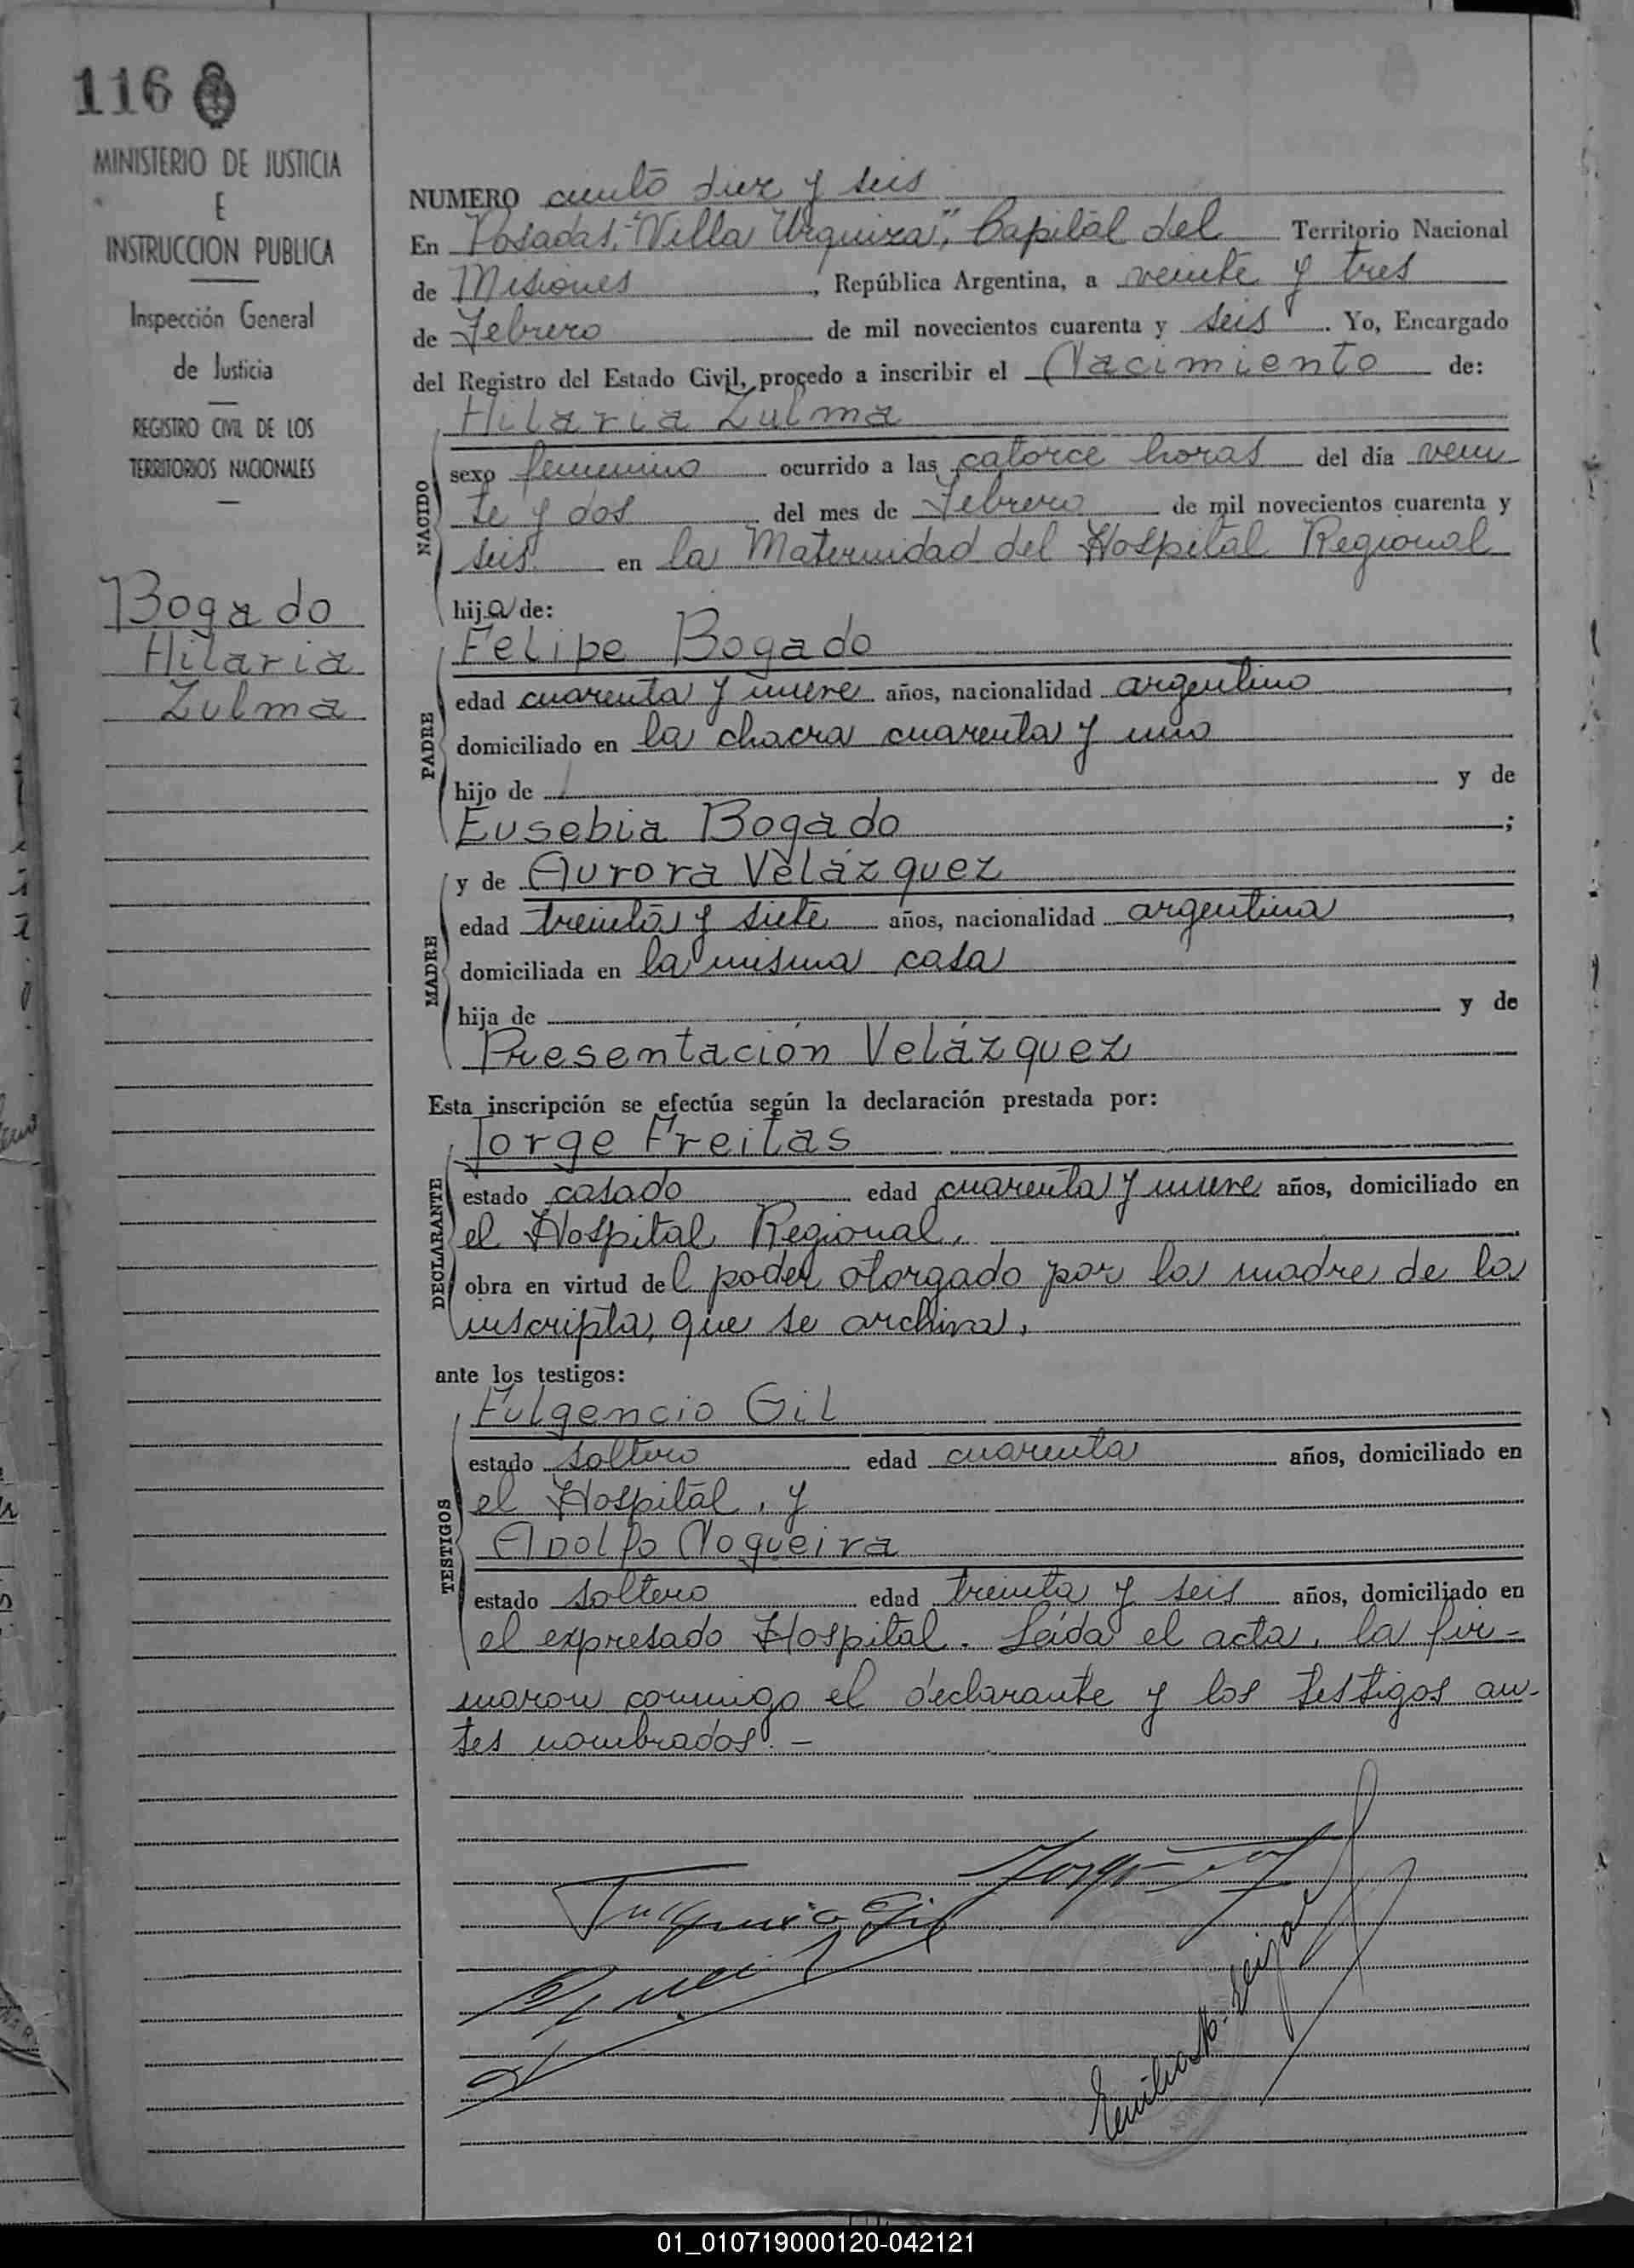 116
MINISTERIO DE JUSTICIA
E
INSTRUCCION PUBLICA
Inspección General
de Justicia
REGISTRO CIVIL DE LOS
TERRITORIOS NACIONALES
Bogado
Hilaria
Zulma
NUMERO ciento diez y seis
En Posadas, "Villa Urquiza", Capital del Territorio Nacional
de Misiones, República Argentina, a veinte y tres
de Febrero de mil novecientos cuarenta y seis. Yo, Encargado
del Registro del Estado Civil, procedo a inscribir el Nacimiento de:
Hilaria Zulma
NACIDO
sexo femenino ocurrido a las catorce horas del día vein
te y dos del mes de Febrero de mil novecientos cuarenta y
seis en la Maternidad del Hospital Regional
hija de:
Felipe Bogado
PADRE
edad cuarenta y nueve años, nacionalidad argentino,
domiciliado en la chacra cuarenta y uno
hijo de y de
Eusebia Bogado;
y de Aurora Velázquez
MADRE
edad treinta y siete años, nacionalidad argentina,
domiciliada en la misma casa
hija de y de
Presentación Velázquez
Esta inscripción se efectúa según la declaración prestada por:
Jorge Freitas
DECLARANTE
estado casado edad cuarenta y nueve años, domiciliado en
el Hospital Regional,
obra en virtud del poder otorgado por la madre de la
inscripta, que se archiva,
ante los testigos:
Fulgencio Gil
TESTIGOS
estado soltero edad cuarenta años, domiciliado en
el Hospital, y
Adolfo Nogueira
estado soltero edad treinta y seis años, domiciliado en
el expresado Hospital. Leída el acta, la fir-
maron conmigo el declarante y los testigos an-
tes nombrados. -
Fulgencio Gil
01_010719000120-042121